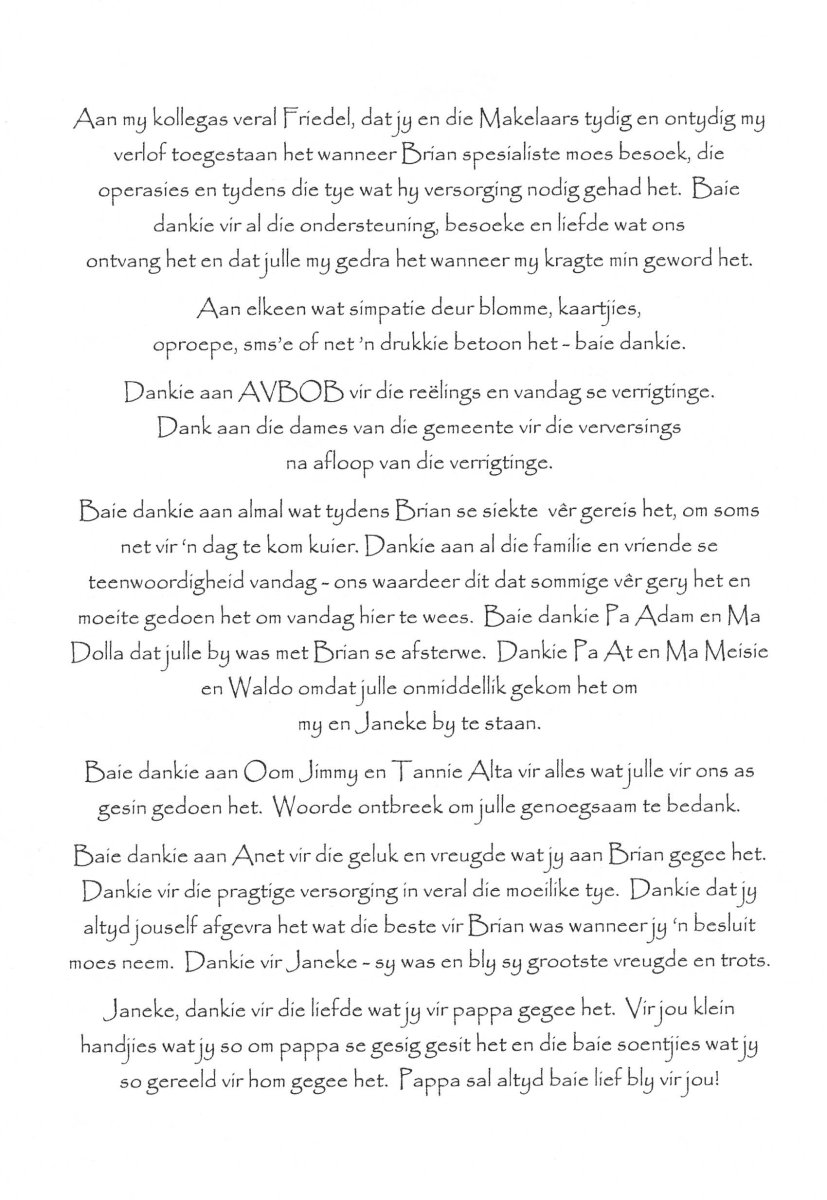 Aan my kollegas veral Friedel, dat jy en die Makelaars tydig en ontydig my
verlof toegestaan het wanneer Brian spesialiste moes besoek, die
operasies en tydens die tye wat hy versorging nodig gehad het. Baie
dankie vir al die ondersteuning, besoeke en liefde wat ons
ontvang het en dat julle my gedra het wanneer my kragte min geword het.
Aan elkeen wat simpatie deur blomme, kaartjies,
oproepe, sms'e of net 'n drukkie betoon het - baie dankie.
Dankie aan AVBOB vir die reëlings en vandag se verrigtinge.
Dank aan die dames van die gemeente vir die verversings
na afloop van die verrigtinge.
Baie dankie aan almal wat tydens Brian se siekte vêr gereis het, om soms
net vir 'n dag te kom kuier. Dankie aan al die familie en vriende se
teenwoordigheid vandag - ons waardeer dit dat sommige vêr gery het en
moeite gedoen het om vandag hier te wees. Baie dankie Pa Adam en Ma
Dolla dat julle by was met Brian se afsterwe. Dankie Pa At en Ma Meisie
en Waldo omdat julle onmiddellik gekom het om
my en Janeke by te staan.
Baie dankie aan Oom Jimmy en Tannie Alta vir alles wat julle vir ons as
gesin gedoen het. Woorde ontbreek om julle genoegsaam te bedank.
Baie dankie aan Anet vir die geluk en vreugde wat jy aan Brian gegee het.
Dankie vir die pragtige versorging in veral die moeilike tye. Dankie dat jy
altyd jouself afgevra het wat die beste vir Brian was wanneer jy 'n besluit
moes neem. Dankie vir Janeke - sy was en bly sy grootste vreugde en trots.
Janeke, dankie vir die liefde wat jy vir pappa gegee het. Vir jou klein
handjies wat jy so om pappa se gesig gesit het en die baie soentjies wat jy
so gereeld vir hom gegee het. Pappa sal altyd baie lief bly vir jou!